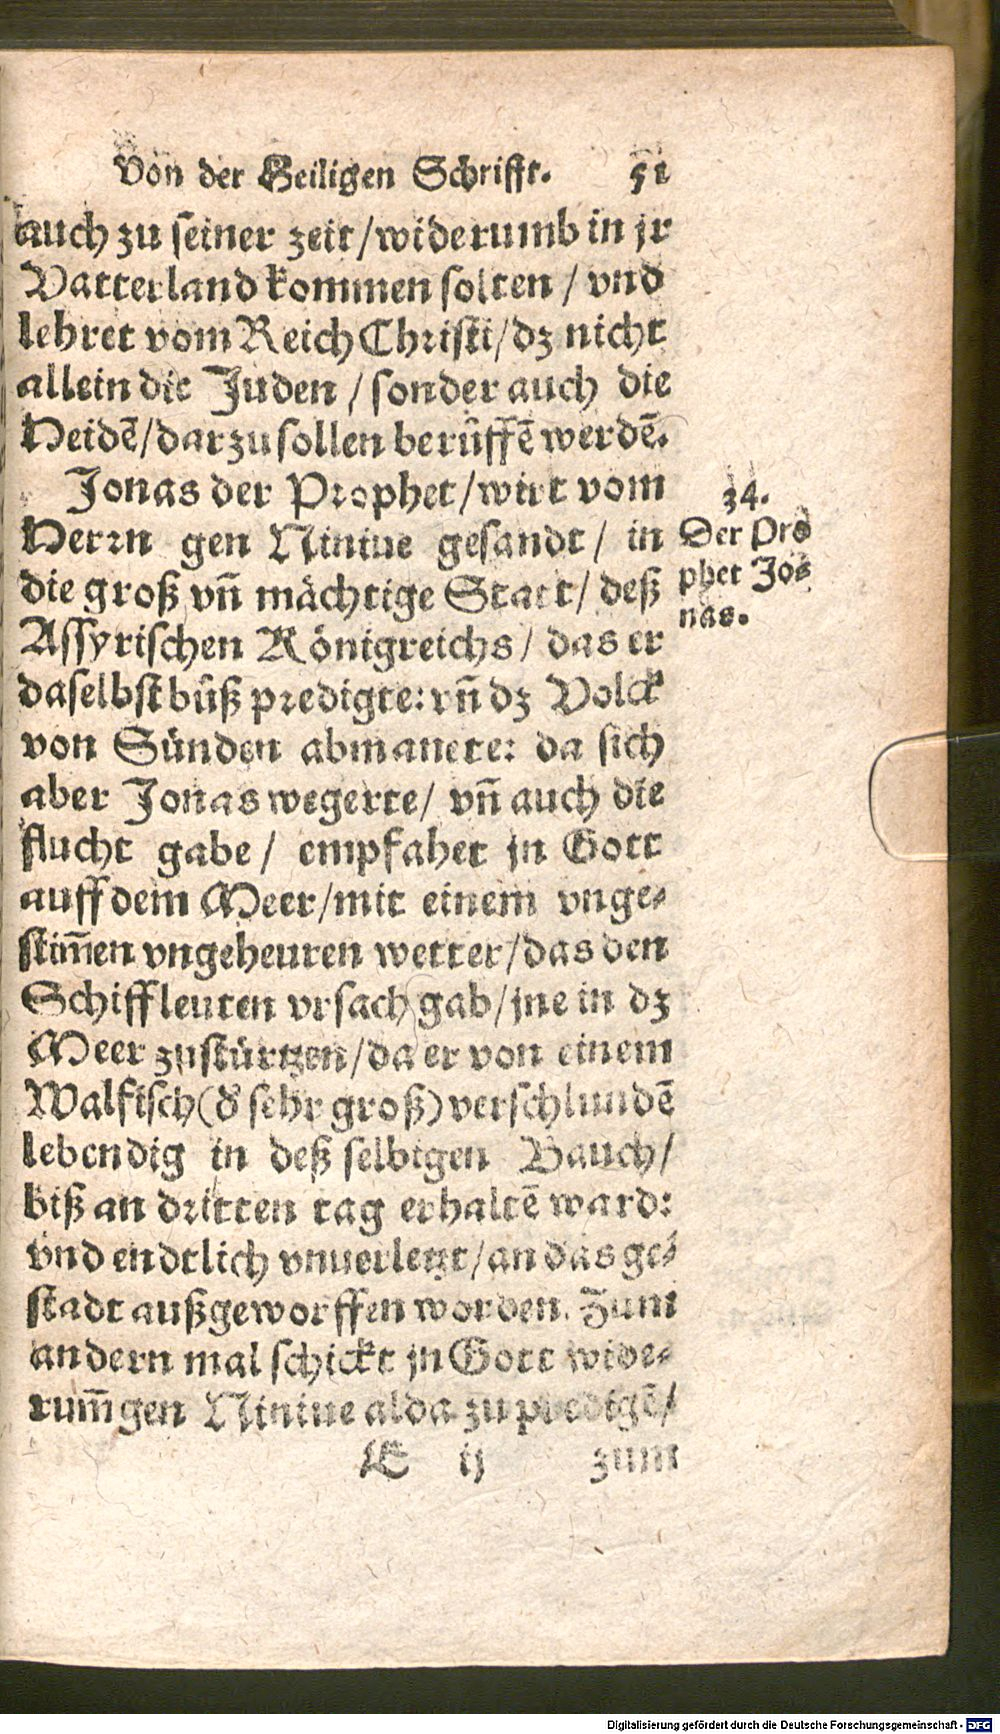 Von der Heiligen Schrifft. 51
auch zu seiner zeit/widerumb in jr
Vatterland kommen solten / vnd
lehret vom Reich Christi/dz nicht
allein die Juden / sonder auch die
Heidē/darzu sollen berůffē werdē.
Jonas der Prophet/wirt vom
Herrn gen Niniue gesandt / in
die groß vñ mächtige Statt/ deß
Assyrischen Königreichs / das er
daselbst bůß predigte: vñ dz Volck
von Sünden abmanete: da sich
aber Jonas wegerte/ vñ auch die
flucht gabe / empfahet jn Gott
auff dem Meer/mit einem vnge-
stim̃en vngeheuren wetter/das den
Schiffleuten vrsach gab/jne in dz
Meer zustürtzen/da er von einem
Walfisch(d' sehr groß)verschlundē
lebendig in deß selbigen Bauch/
biß an dritten tag erhaltē ward:
vnd endtlich vnuerletzt/an das ge-
stadt außgeworffen worden. Zum
andern mal schickt jn Gott wide-
rum̃ gen Niniue alda zu predigē/
E ij zum
34.
Der Pro
phet Jo-
nas.
Digitalisierung gefördert durch die Deutsche Forschungsgemeinschaft - DFG